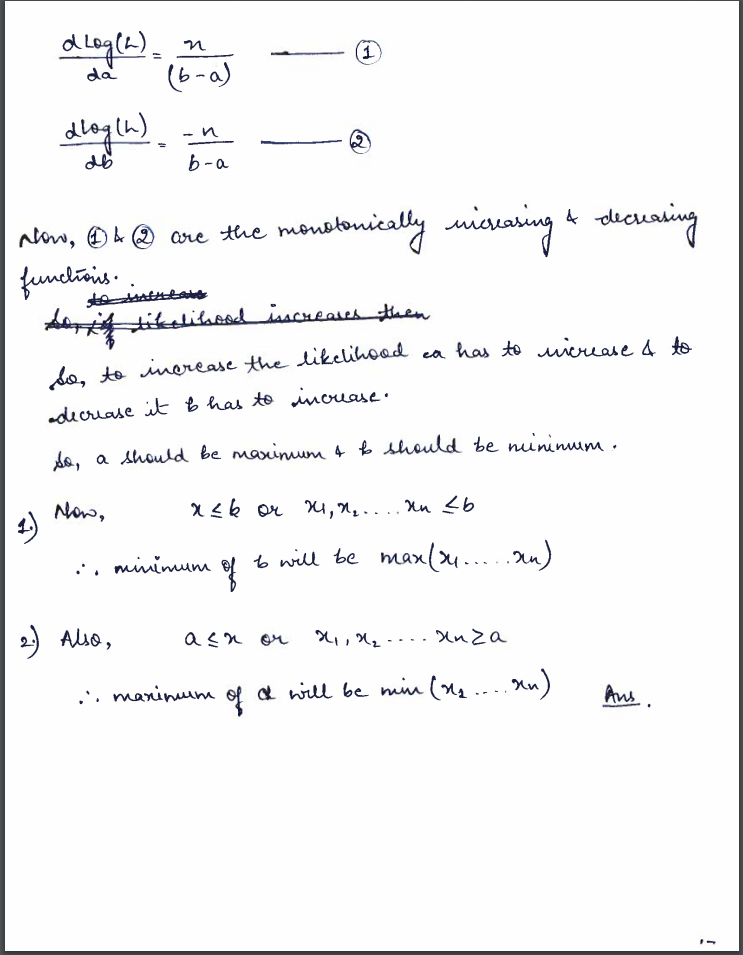 dLog(L)/da = n/(b-a) ——— ①
dLog(L)/db = -n/b-a ——— ②
Now, ① & ② are the monotonically increasing & decreasing
functions.
to increase
So, if likelihood increases then
So, to increase the likelihood a has to increase & to
decrease it b has to increase.
So, a should be maximum & b should be minimum.
1.) Now, x ≤ b or x₁, x₂ .... xn ≤ b
∴ minimum of b will be max(x₁ ..... xn)
2.) Also, a ≤ x or x₁, x₂ .... xn ≥ a
∴ maximum of a will be min (x₂ .... xn) Ans.